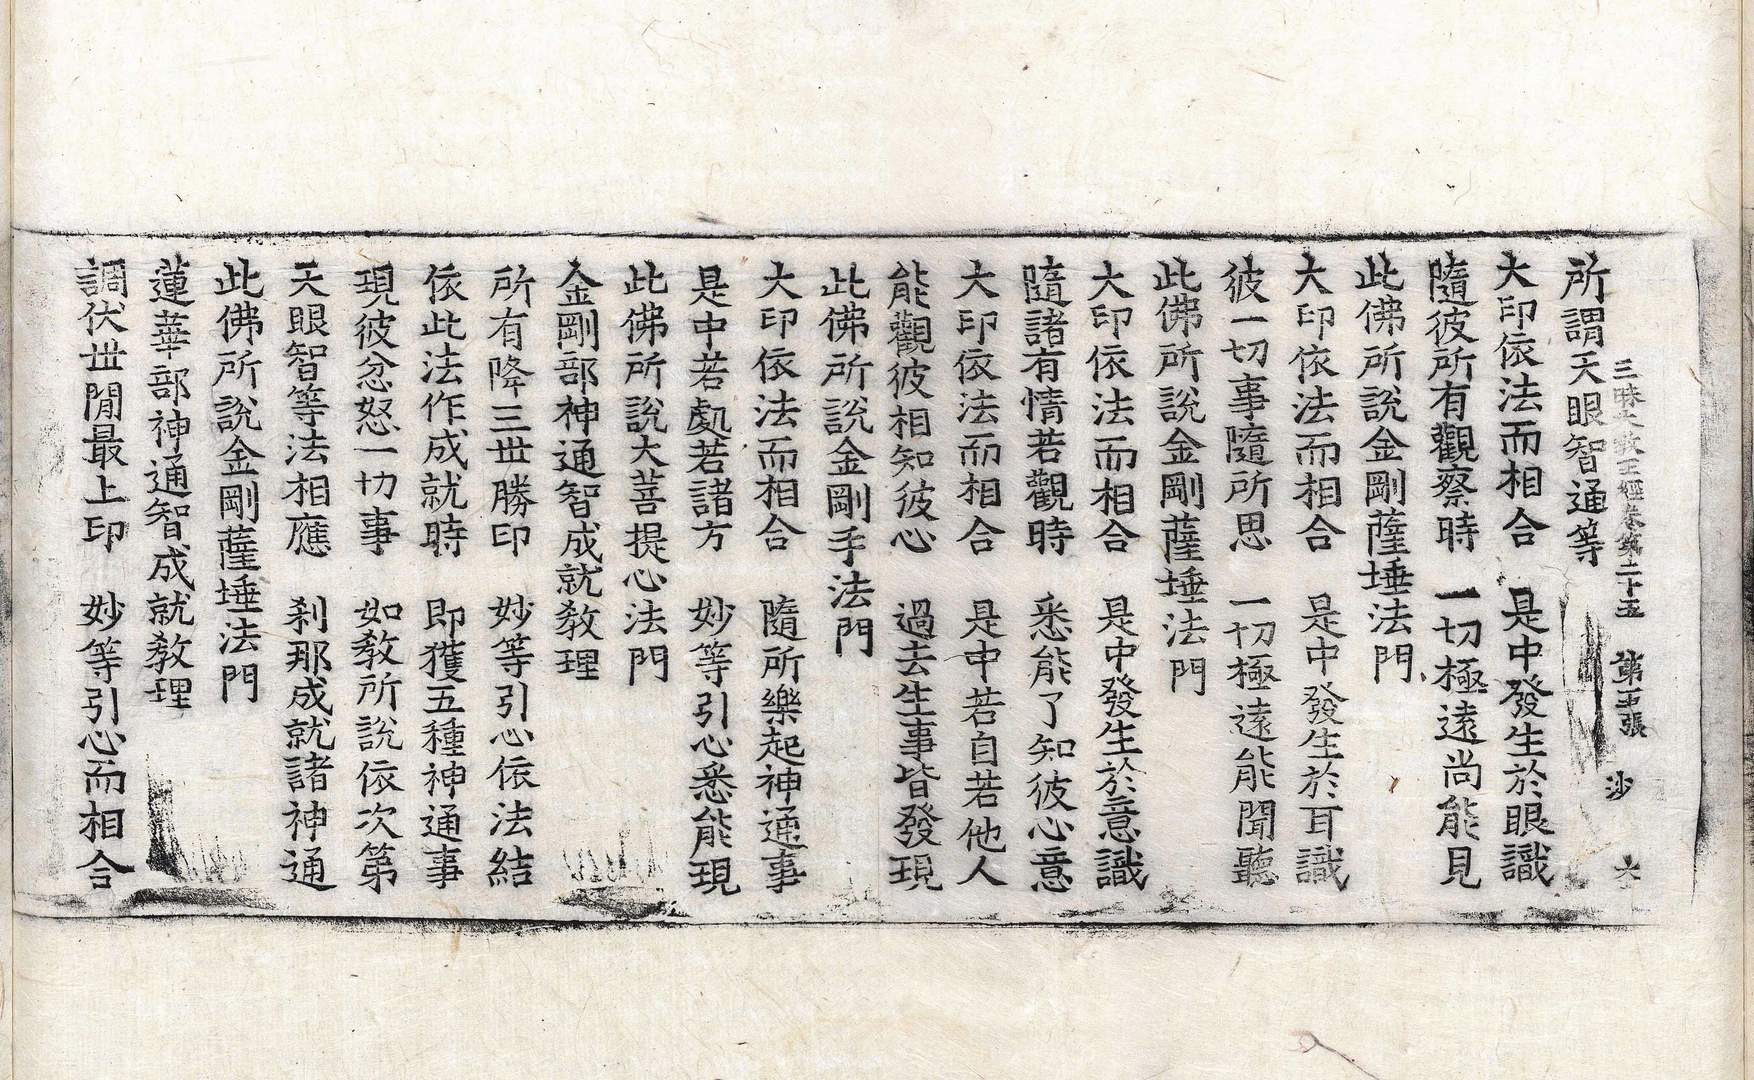 三昧大教王經卷第二十五 第五張 沙
所謂天眼智通等
大印依法而相合 是中發生於眼識
隨彼所有觀察時 一切極遠尚能見
此佛所說金剛薩埵法門
大印依法而相合 是中發生於耳識
彼一切事隨所思 一切極遠能聞聽
此佛所說金剛薩埵法門
大印依法而相合 是中發生於意識
隨諸有情若觀時 悉能了知彼心意
大印依法而相合 是中若自若他人
能觀彼相知彼心 過去生事皆發現
此佛所說金剛手法門
大印依法而相合 隨所樂起神通事
是中若處若諸方 妙等引心悉能現
此佛所說大菩提心法門
金剛部神通智成就教理
所有降三世勝印 妙等引心依法結
依此法作成就時 即獲五種神通事
現彼忿怒一切事 如教所說依次第
天眼智等法相應 剎那成就諸神通
此佛所說金剛薩埵法門
蓮華部神通智成就教理
調伏世閒最上印 妙等引心而相合